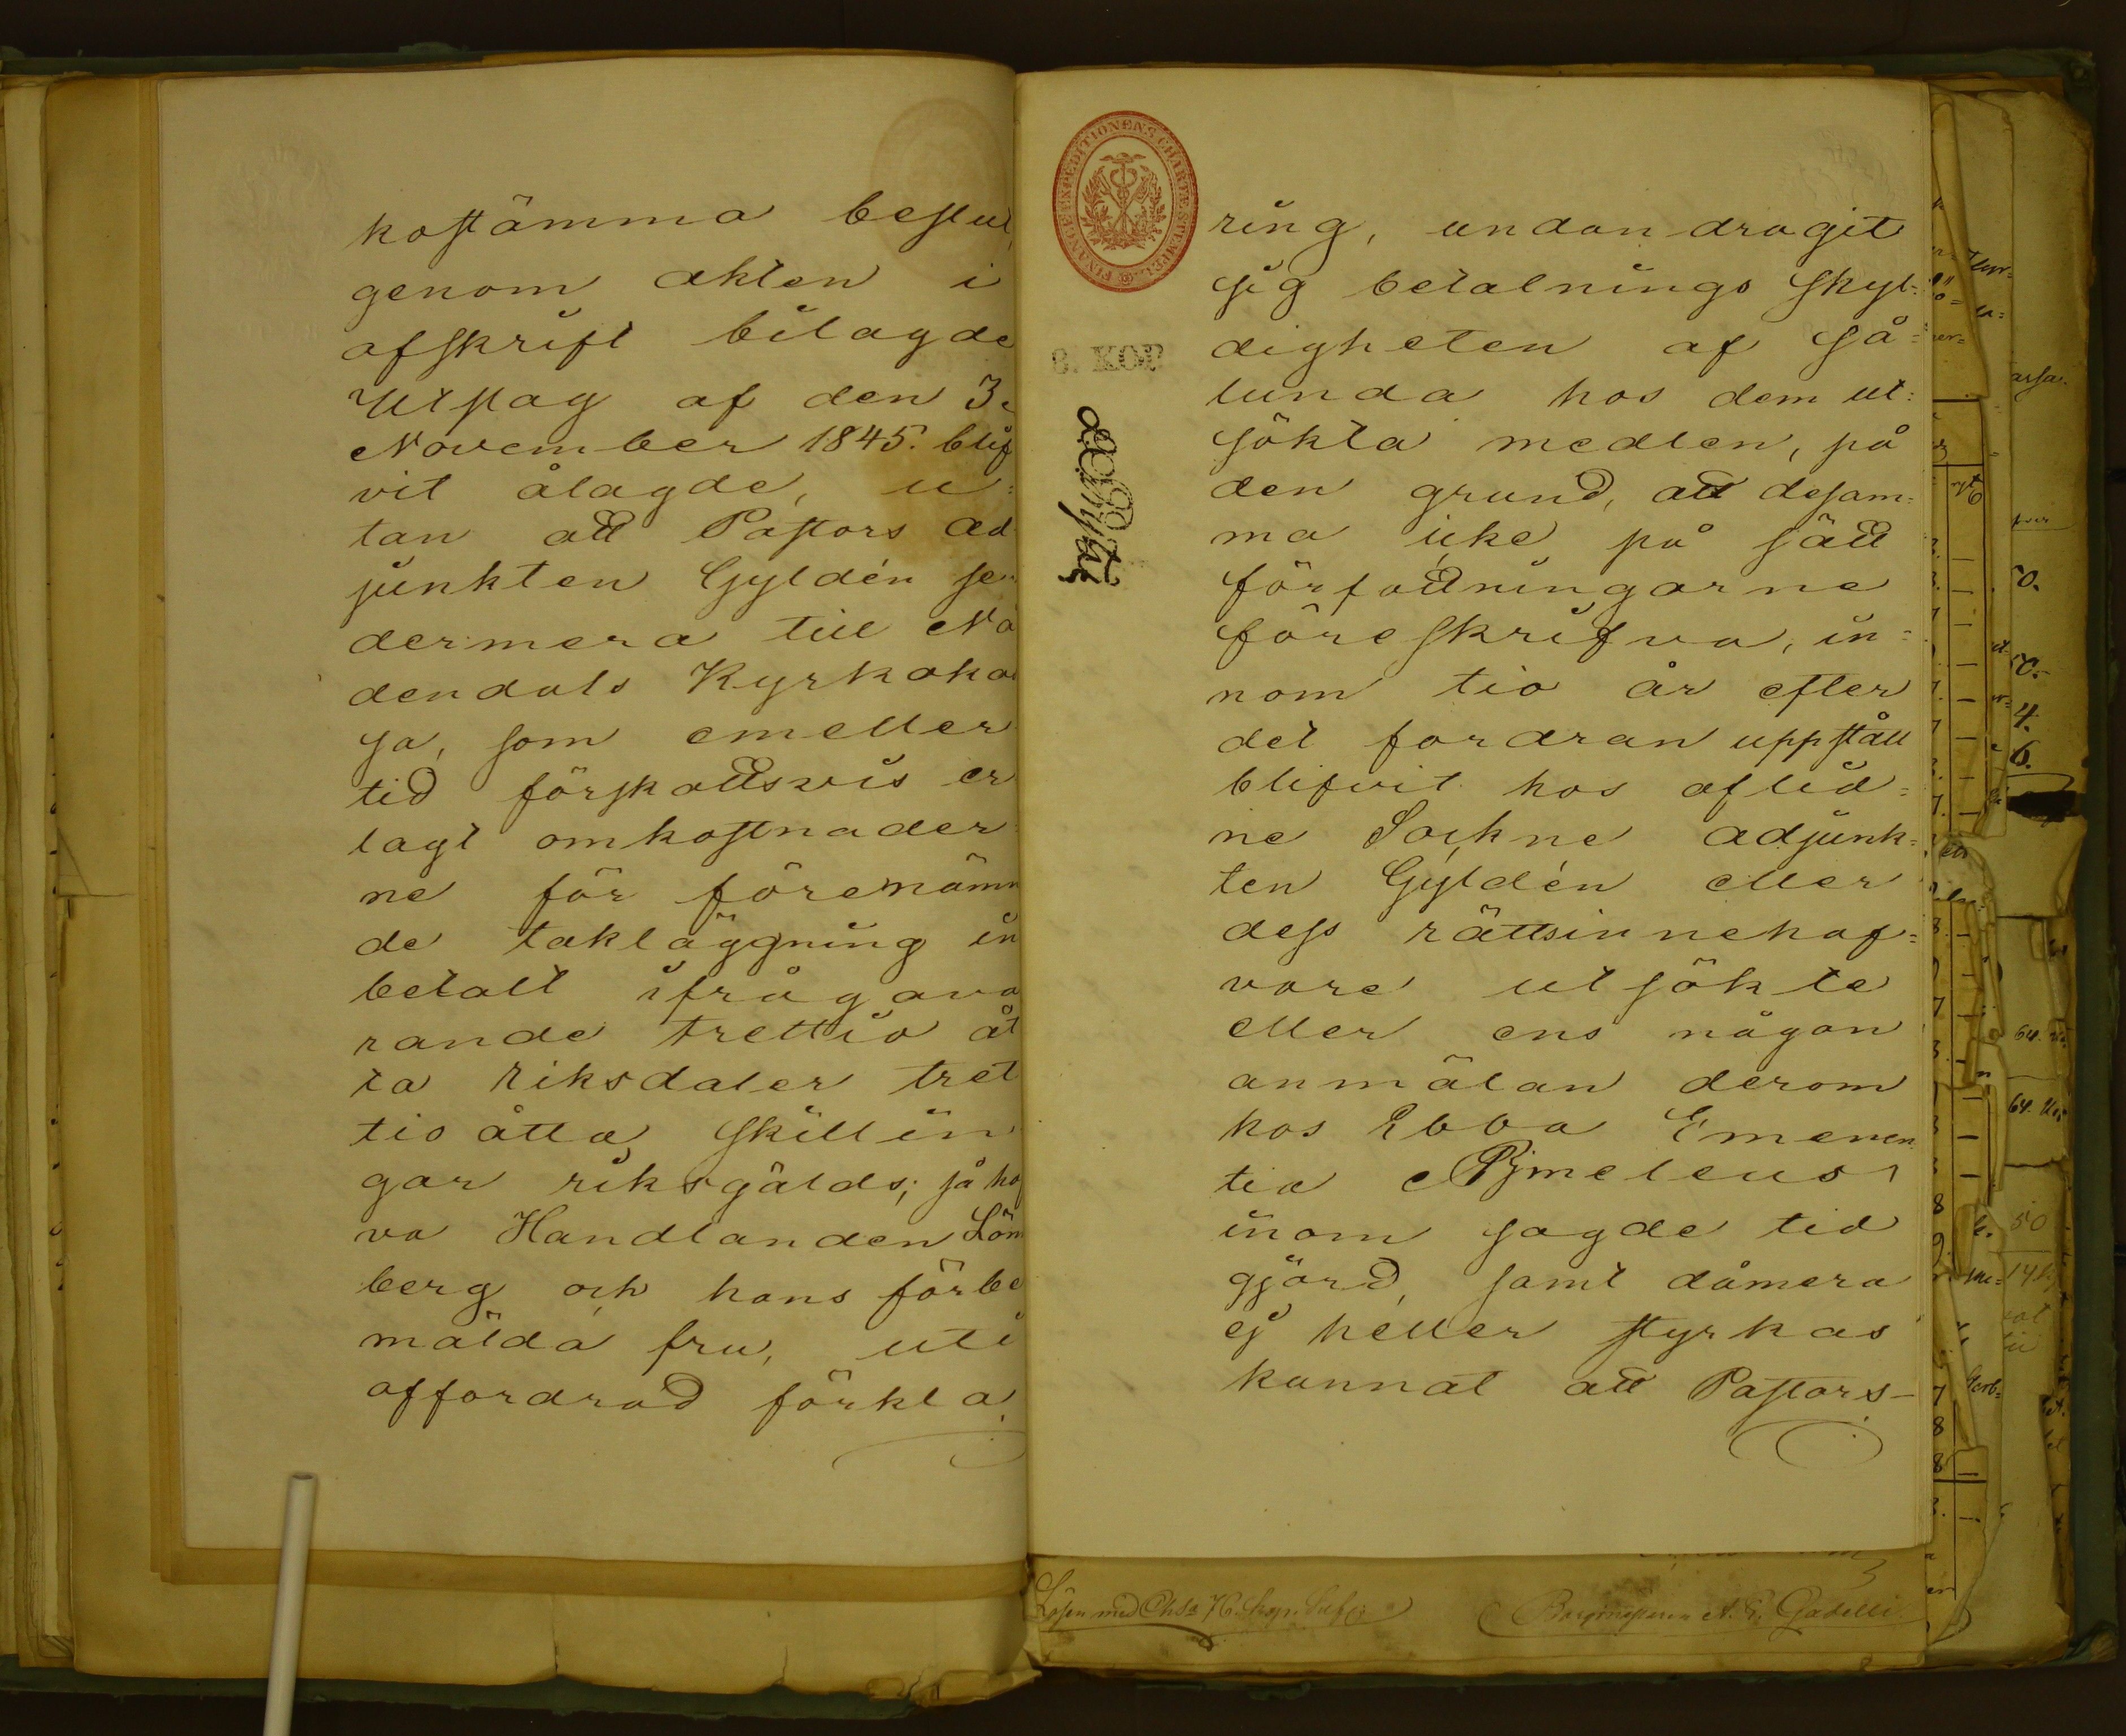 kostämma beslut,
genom akten i
afskrift bilagde
Utslag af den 3.
November 1845. blif
vit ålagde, u=
tan att Pastors Ad
junkten Gyldén se=
dermera till Nå
dendals Kyrkoka
sa, som emeller
tid förskottsvis er
lagt omkostnader
ne för förenämn
de takläggning in
betalt ifrågava
rande trettio åt
ta Riksdaler tret
tio åtta Skillin
gar riksgälds; så ha
va Handlanden Lön
berg och hans förbe
mälda fru, uti
affordrad förkla
FINANCE EXPEDITIONENS CHARTÆ STEMPEL
8. KOP.
ring, undandragit
sig betalnings skyl=
digheten af så=
lunda hos dem ut=
sökta medlen, på
den grund, att desam=
ma icke på sätt
författningarne
föreskrifva, in=
nom tio år efter
det fordran uppstått
blifvit hos aflid=
ne Sockne adjunk=
ten Gyldén eller
dess rättsinnehaf=
vare utsökte
eller ens någon
anmälan derom
hos Ebba Emeren
tia Pjmeleus
inom sagde tid
gjord, samt dåmera
ej heller styrkas
kunnat att Pastors-
Lösen med
Borgmästaren A. G. Gadelli